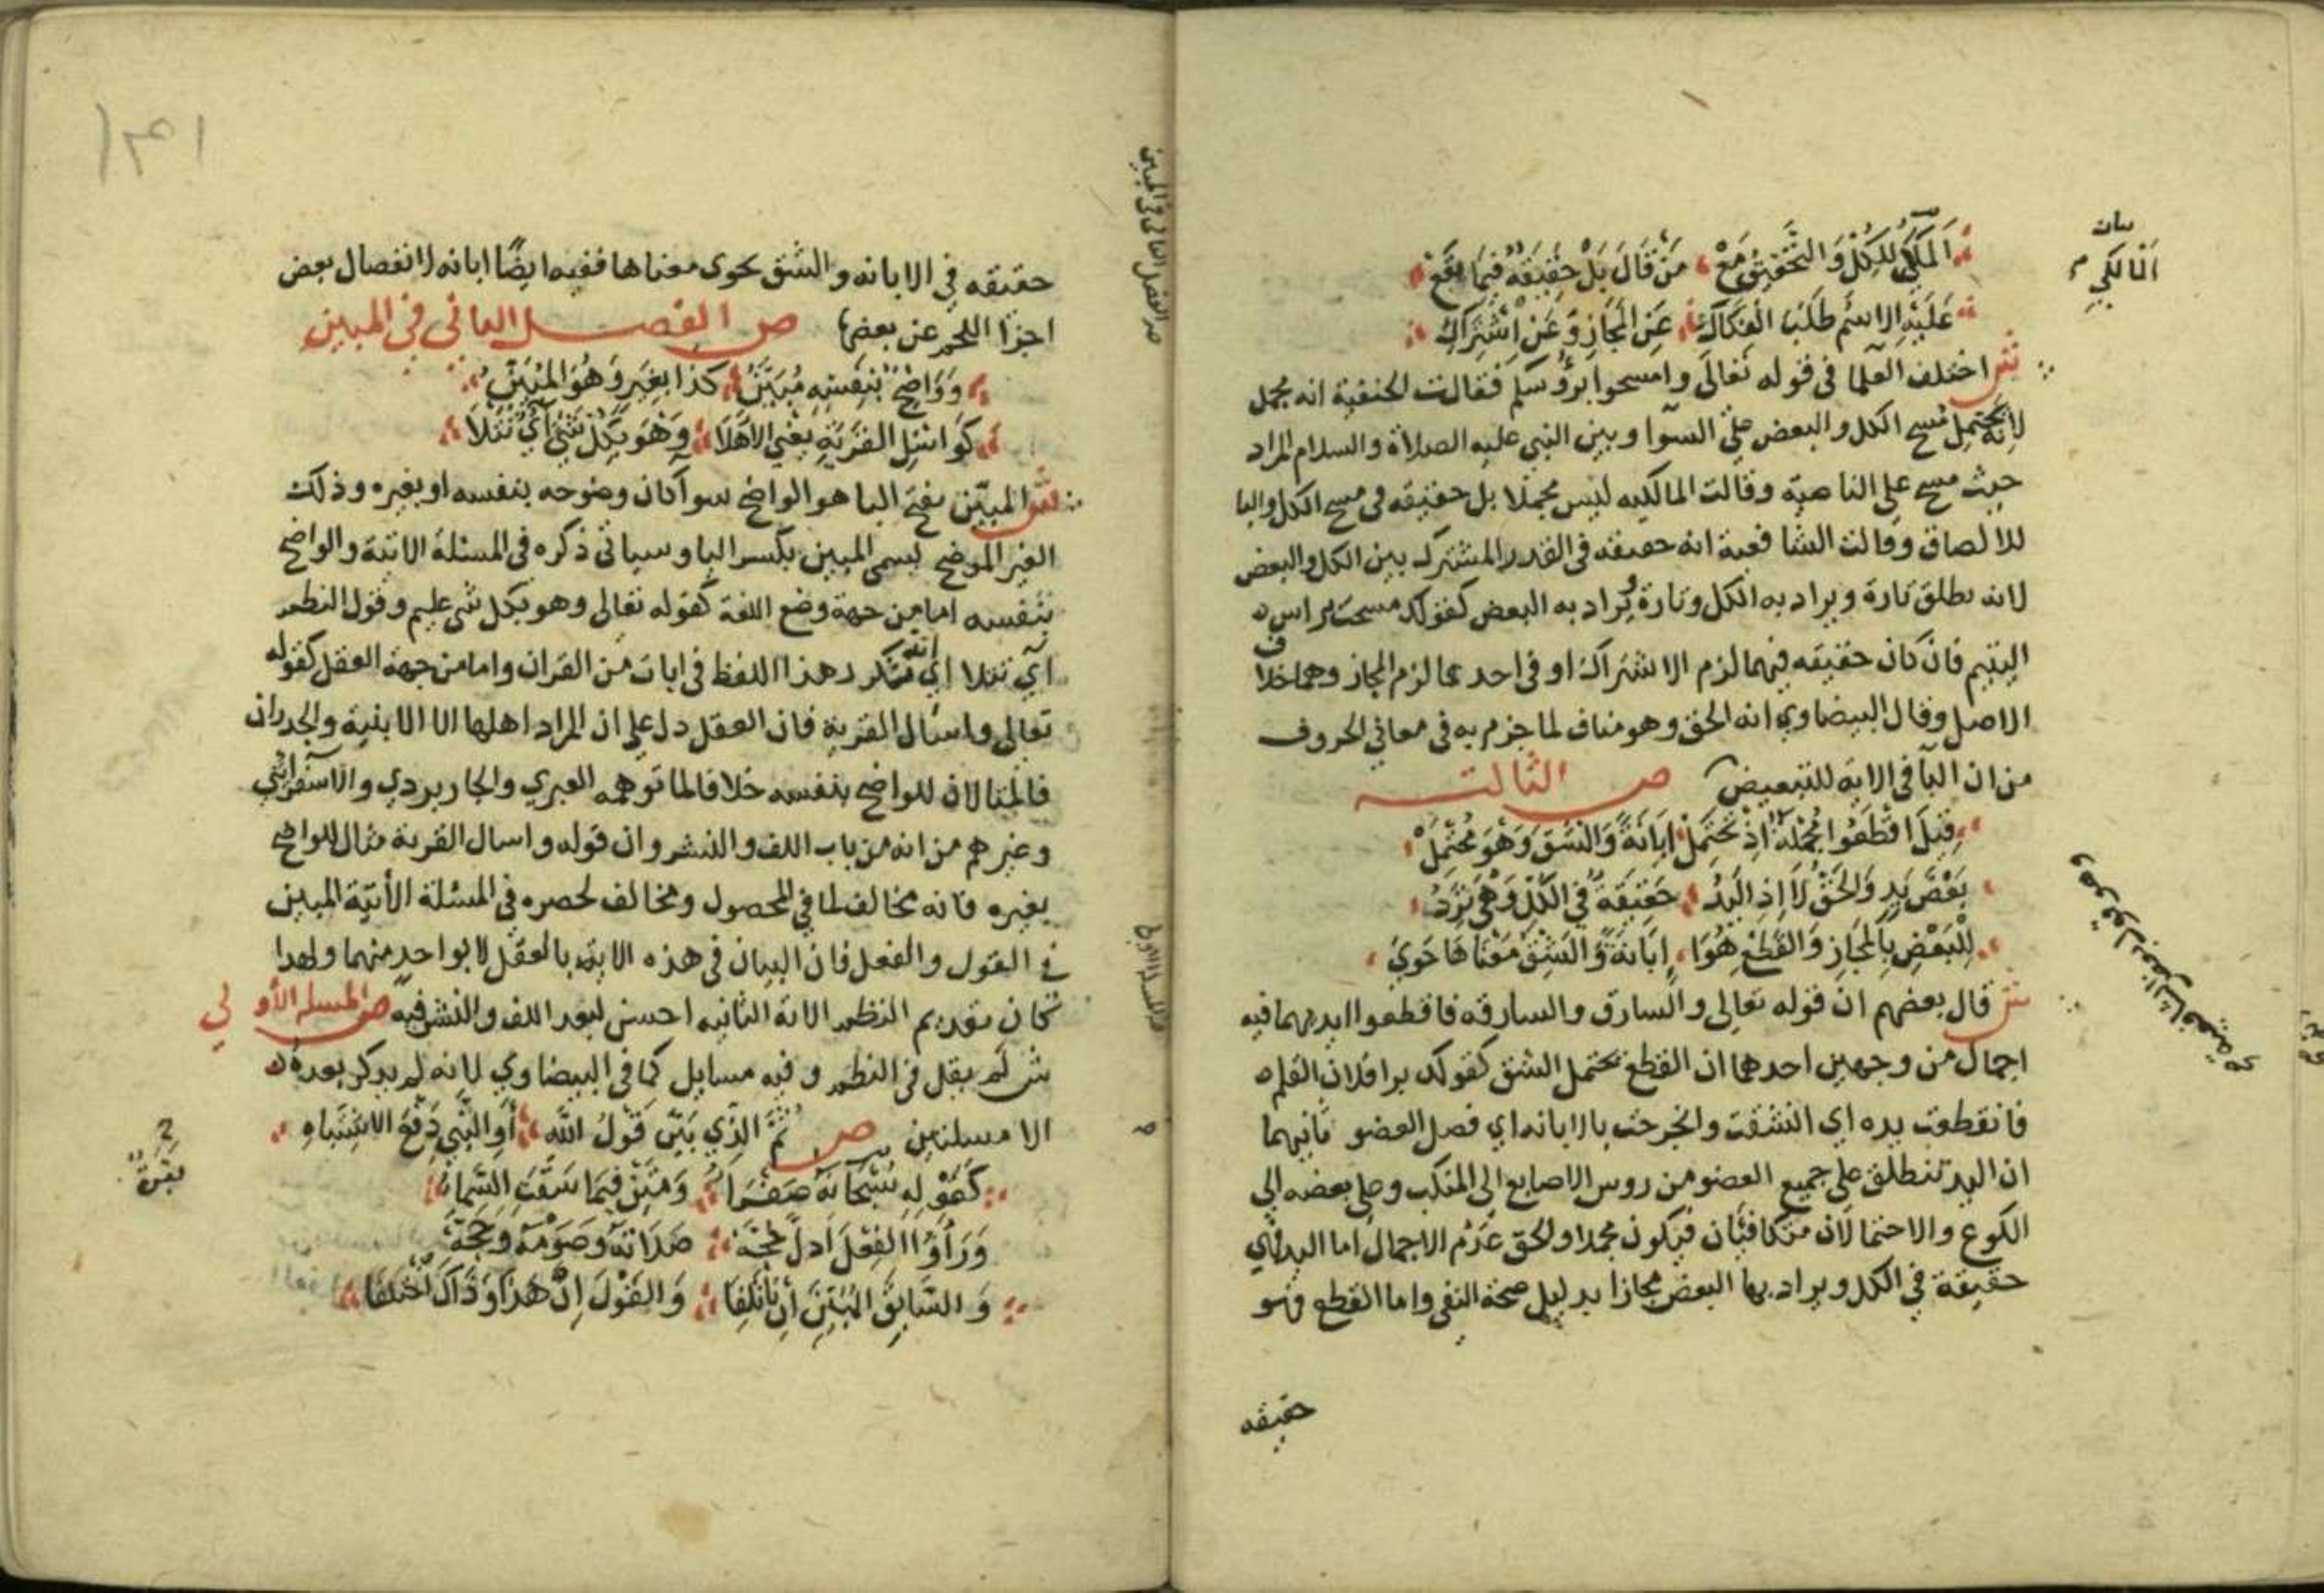 المالكي للكل والتحقيق مع من قال بل حقيقة فيما يقع
عليه الاسم طلب انفكاك عن المجاز وعن اشتراك
ش اختلف العلما في قوله تعالى وامسحوا برؤسكم فقالت الحنفية انه مجمل
لانه يحتمل مسح الكل والبعض على السوآ وبين النبي عليه الصلاة والسلام المراد
حيث مسح على الناصية وقالت المالكيه ليس مجملا بل حقيقه في مسح الكل والبا
للالصاق وقالت الشافعية انه حقيقه في القدر المشترك بين الكل والبعض
لانه يطلق تارة ويراد به الكل وتارة ويراد به البعض كقولك مسحت براس
اليتيم فان كان حقيقه فيهما لزم الاشتراك او في احدهما لزم المجاز وهما خلاف
الاصل وقال البيضاوي انه الحق وهو مناف لما جزم به في معاني الحروف
من ان البآ في الايه للتبعيض ص الثالثه
وقيل اقطعوا مجملة اذ تحتمل ابانة والشق وهو محتمل
بعض يد والحق لا اذ اليد حقيقة في الكل وهي ترد
للبعض بالمجاز والقطع هوا ابانة والشق معناها حوي
ش قال بعضهم ان قوله تعالى والسارق والسارقه فاقطعوا ايديهما فيه
اجمال من وجهين احدهما ان القطع يحتمل الشق كقولك برا فلان القلم
فانقطعت يده اي انشقت وانجرحت بالابانه اي فصل العضو ثانيهما
ان اليد تنطلق على جميع العضو من روس الاصابع الى المنكب وعلى بعضه الى
الكوع والاحتمالان متكافئان فيكون مجملا والحق عدم الاجمال اما اليد فهي
حقيقة في الكل ويراد بها البعض مجازا بدليل صحة النفي واما القطع فهو
حقيقه
بيان
المالكي م
١٣١
حقيقه في الابانه والشق يحوي معناها ففيه ايضًا ابانه لانفصال بعض
اجزا اللحم عن بعضها ص الفصل الثاني في المبين
وواضح بنفسه مبين كذا بغير وهو المبين
كواسئل القرية يعني الاهلا وهو بكل شيء اي تتلا
ش المبين بفتح اليا هو الواضح سوآ كان وضوحه بنفسه او بغيره وذلك
الغير الموضح يسمى المبين بكسر اليا وسياتي ذكره في المسئلة الاتية والواضح
بنفسه اما من جهة وضع اللغة كقوله تعالى وهو بكل شي عليم وقول النظم
آي تتلا اي انه تتكرر هذا اللفظ في ايات من القران واما من جهة العقل كقوله
تعالى واسال القرية فان العقل دل على ان المراد اهلها الا الابنية والجدران
فالمثالان للواضح بنفسه خلافا لما توهمه العبري والجاربردي والاسفرايني
وغيرهم من انه من باب اللف والنشر وان قوله واسال القرية مثال للواضح
بغيره فانه مخالف لما في المحصول ومخالف لحصره في المسئلة الآتية المبين
في القول والفعل فان البيان في هذه الايه بالعقل لا بواحد منهما ولهذا
كان تقديم النظم الاية الثانيه احسن لبعد اللف والنشر فيه ص المسله الأولي
ش لم يقل في النظم وفيه مسايل كما في البيضاوي لانه لم يذكر بعده
الا مسلتين ص ثم الذي بين قول الله او النبي دفع الاشتباه
كقوله سبحانه صفراء ومتن فيما سقت السماء
وراوا الفعل ادل لحجة صلاته وصومه وحجه
والسابق المبين ان ياتلفا والقول ان هذا وذاك اختلفا
بقرة